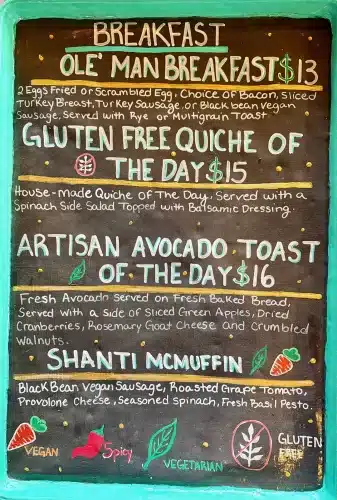 BREAKFAST
OLE' MAN BREAKFAST $13
2 Eggs Fried or Scrambled Egg, Choice of Bacon, Sliced
Turkey Breast, Turkey Sausage, or Black bean Vegan
Sausage, Served with Rye or Multigrain Toast
GLUTEN FREE QUICHE OF
THE DAY $15
House-made Quiche of The Day, Served with a
Spinach Side Salad Topped with Balsamic Dressing.
ARTISAN AVOCADO TOAST
OF·THE·DAY $16
Fresh Avocado Served on Fresh Baked Bread,
Served with a side of Sliced Green Apples, Dried
Cranberries, Rosemary Goat Cheese and Crumbled
Walnuts.
SHANTI MCMUFFIN
Black Bean Vegan Sausage, Roasted Grape Tomato,
Provolone Cheese, Seasoned Spinach, Fresh Basil Pesto.
VEGAN
Spicy
VEGETARIAN
GLUTEN
FREE